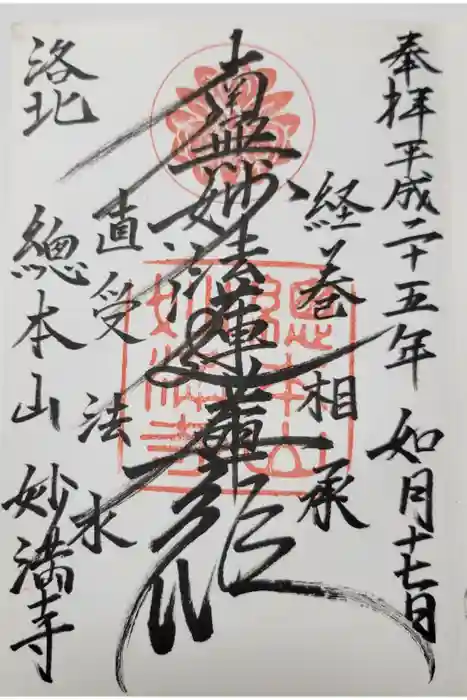 奉拝平成二十五年如月十七日
経巻相承
南無妙法蓮華経
直受法水
洛北
總本山妙満寺